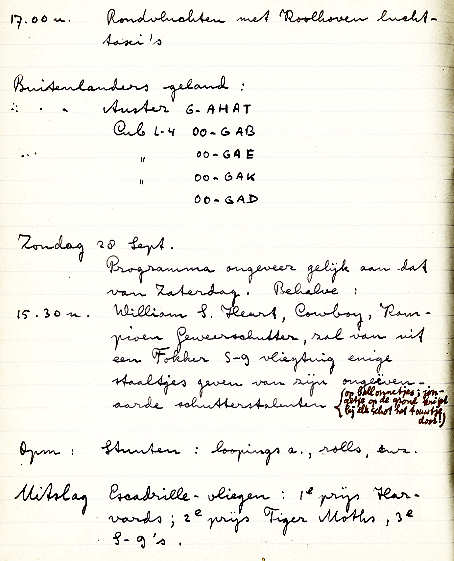 17.00 u. Rondvluchten met Koolhoven lucht-
taxi's
Buitenlanders geland :
" " " Auster G-AHAT
Cub L-4 OO-GAB
" OO-GAE
" OO-GAK
OO-GAD
Zondag 28 Sept.
Programma ongeveer gelijk aan dat
van Zaterdag. Behalve :
15.30 u. William S. Heart, Cowboy, Kam-
pioen Geweerschutter, zal van uit
een Fokker S-9 vliegtuig enige
staaltjes geven van zijn ongeëven-
aarde schutterstalenten
(op ballonnetjes; jon-
getje op de grond knipt
bij elk schot het touwtje
door!)
Opm : Stunten : loopings a., rolls, enz.
Uitslag Escadrille-vliegen : 1e prijs Har-
vards; 2e prijs Tiger Moths, 3e
S-9's.